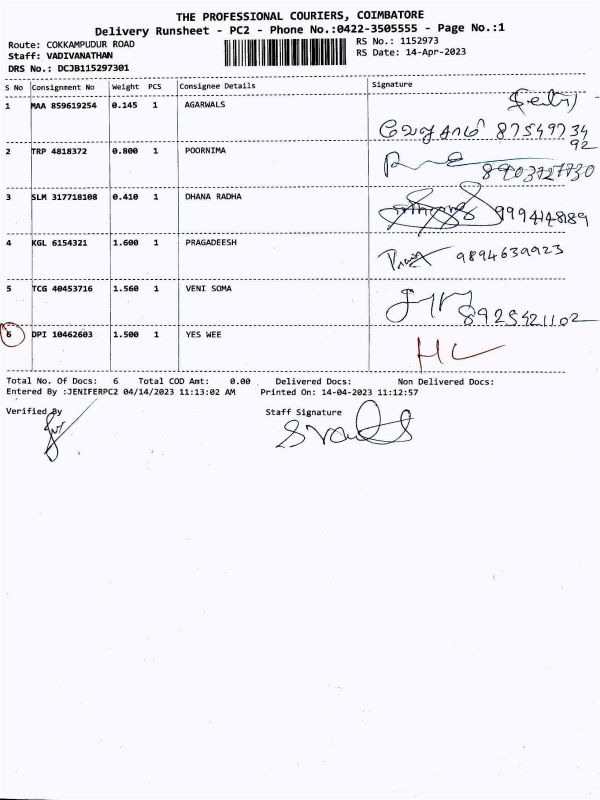 THE PROFESSIONAL COURIERS, COIMBATORE
Delivery Runsheet - PC2 - Phone No.:0422-3505555 - Page No.:1
Route: COKKAMPUDUR ROAD RS No.: 1152973
Staff: VADIVANATHAN RS Date: 14-Apr-2023
DRS No.: DCJB115297301
S No Consignment No Weight PCS Consignee Details Signature
1 MAA 859619254 0.145 1 AGARWALS
87549734
92
2 TRP 4818372 0.800 1 POORNIMA
8903727730
3 SLM 317718108 0.410 1 DHANA RADHA
9994148189
4 KGL 6154321 1.600 1 PRAGADEESH
9894639923
5 TCG 40453716 1.560 1 VENI SOMA
8925421102
6 DPI 10462603 1.500 1 YES WEE
Total No. Of Docs: 6 Total COD Amt: 0.00 Delivered Docs: Non Delivered Docs:
Entered By :JENIFERPC2 04/14/2023 11:13:02 AM Printed On: 14-04-2023 11:12:57
Verified By Staff Signature